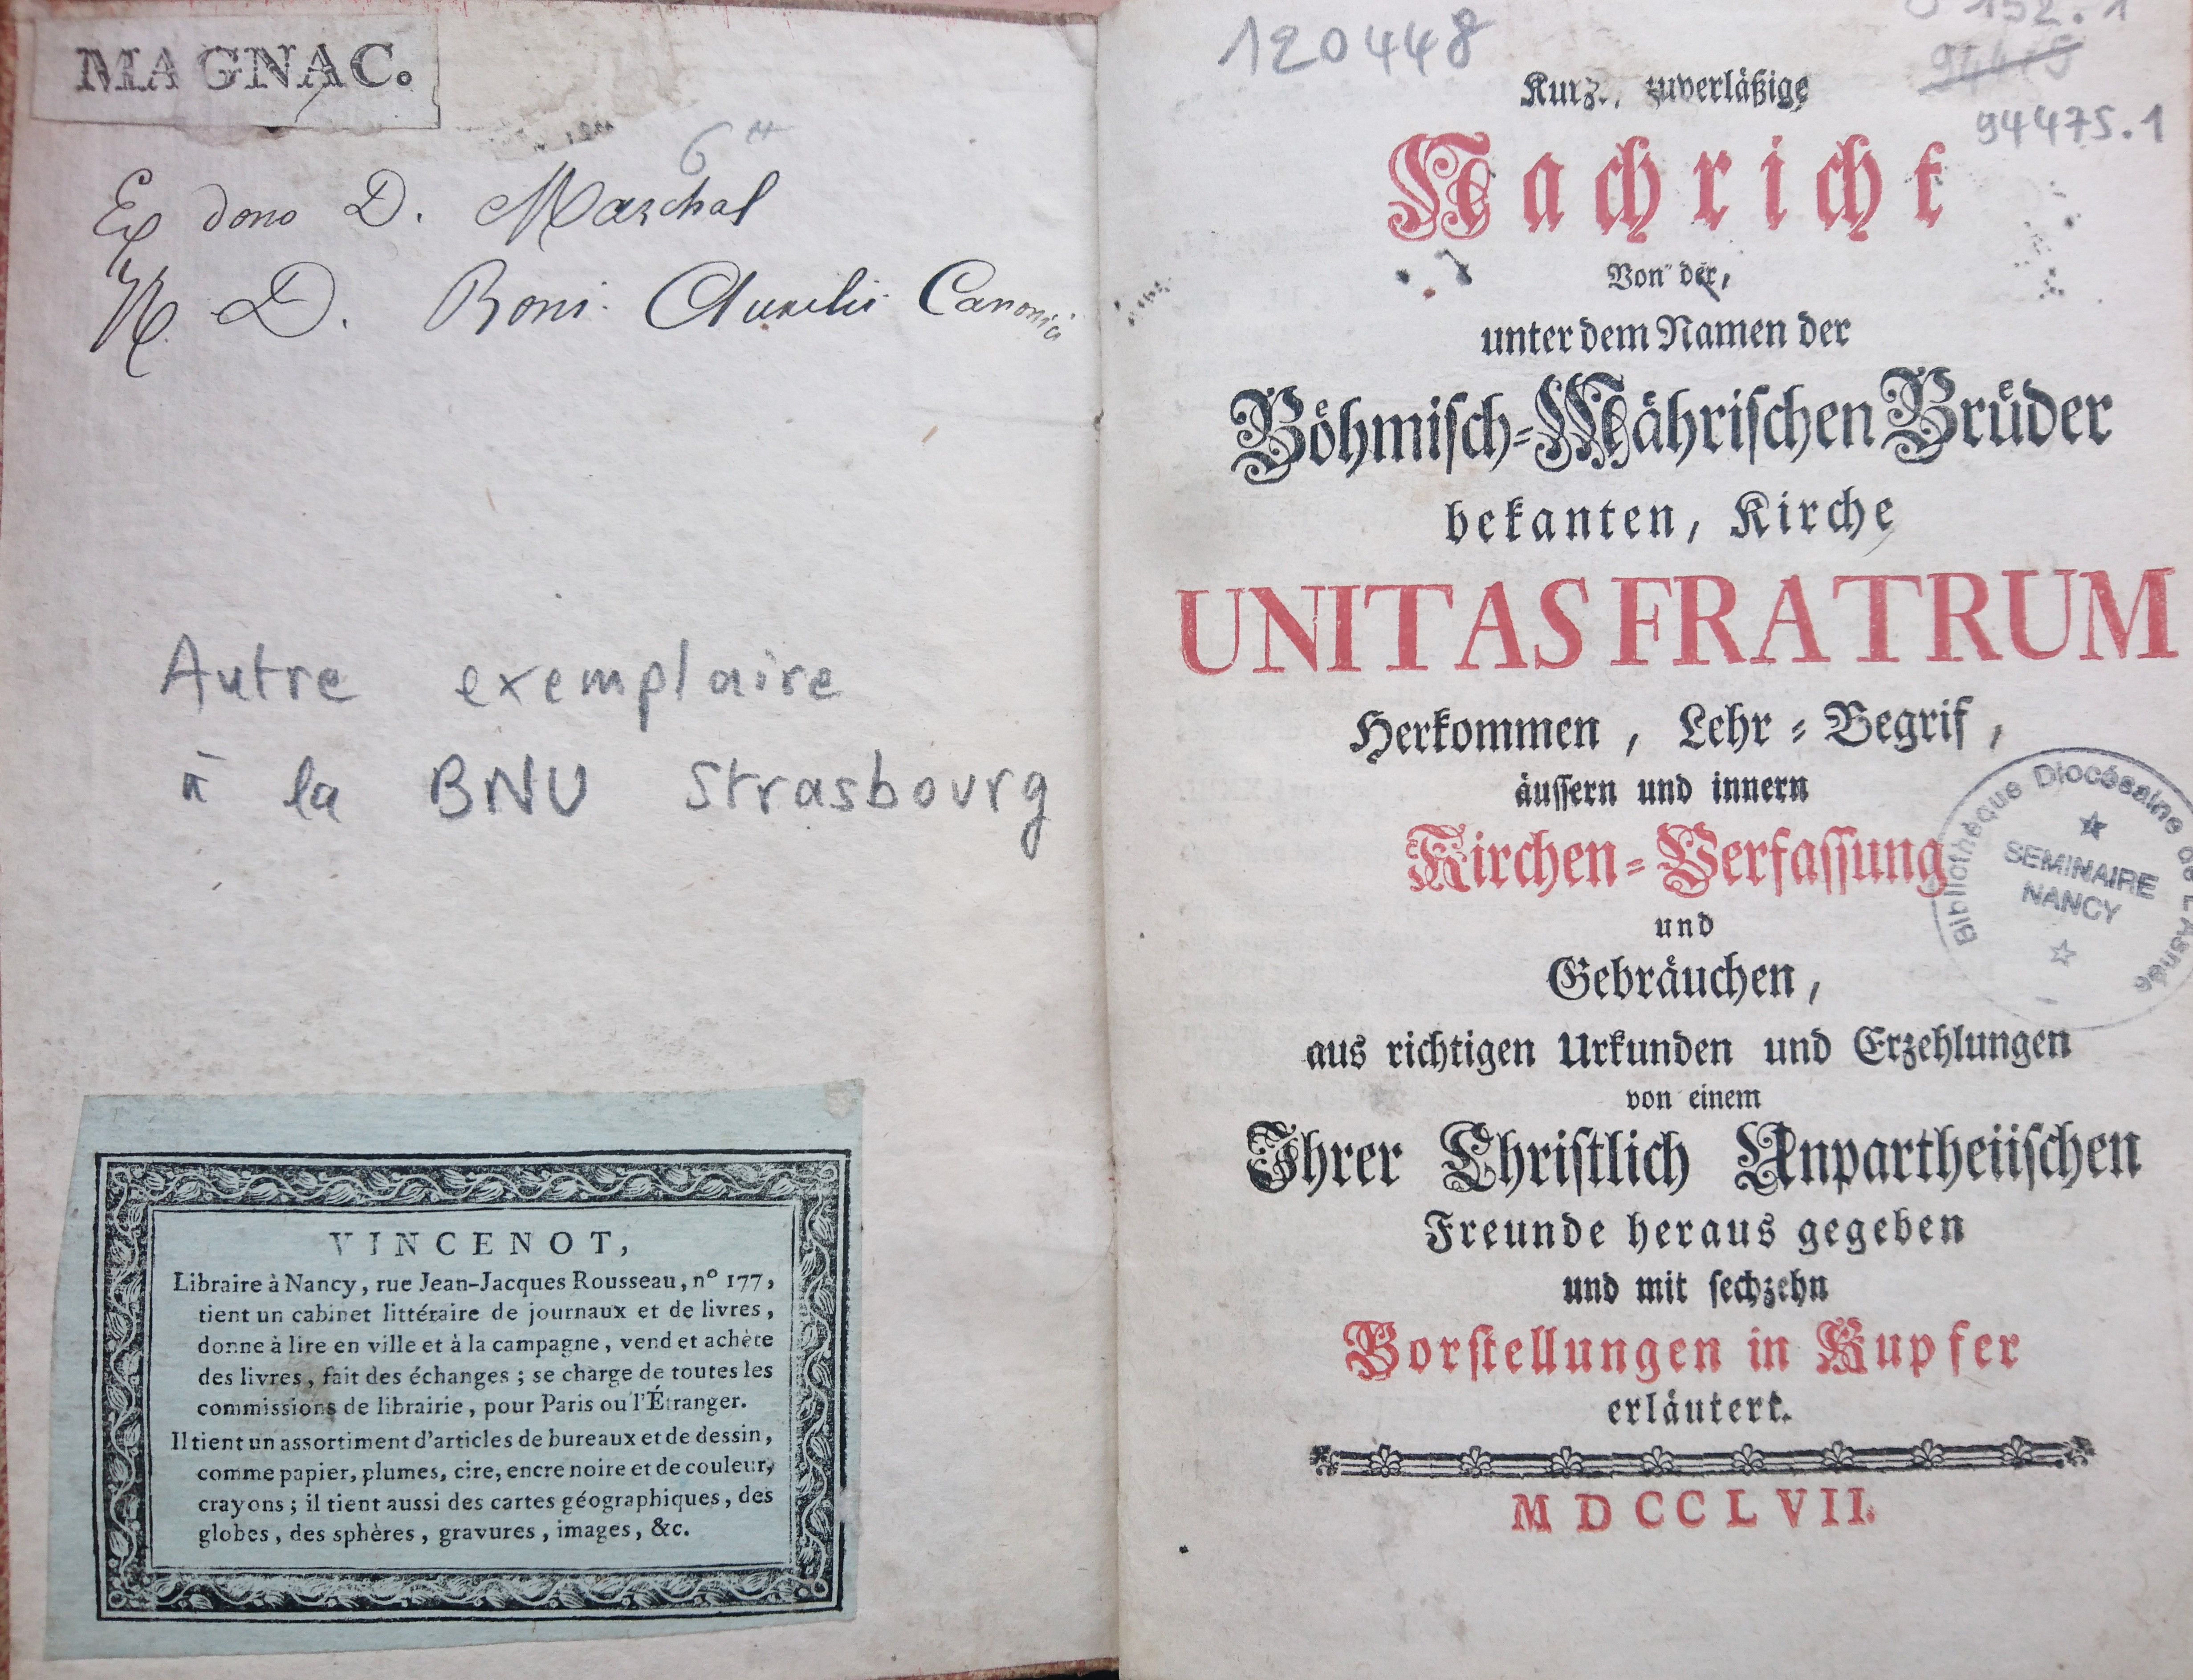 MAGNAC.
6 ᵗᵗ
Ex dono D. Marchal
D. Roni. Aurelii Canonici
Autre exemplaire
à la BNU Strasbourg
VINCENOT,
Libraire à Nancy, rue Jean-Jacques Rousseau, n° 177,
tient un cabinet littéraire de journaux et de livres,
donne à lire en ville et à la campagne, vend et achète
des livres, fait des échanges; se charge de toutes les
commissions de librairie, pour Paris ou l'Étranger.
Il tient un assortiment d'articles de bureaux et de dessin,
comme papier, plumes, cire, encre noire et de couleur,
crayons; il tient aussi des cartes géographiques, des
globes, des sphères, gravures, images, &c.
120448
94475.1
Kurz., zuverläßige
Nachricht
Von der,
unter dem Namen der
Böhmisch-Mährischen Brüder
bekanten, Kirche
UNITAS FRATRUM
Herkommen, Lehr-Begrif,
äussern und innern
Kirchen-Verfassung
und
Gebräuchen,
aus richtigen Urkunden und Erzehlungen
von einem
Ihrer Christlich Unpartheiischen
Freunde heraus gegeben
und mit sechzehn
Vorstellungen in Kupfer
erläutert.
MDCCLVII.
Bibliothèque Diocésaine de l'Asnec
SEMINAIRE
NANCY